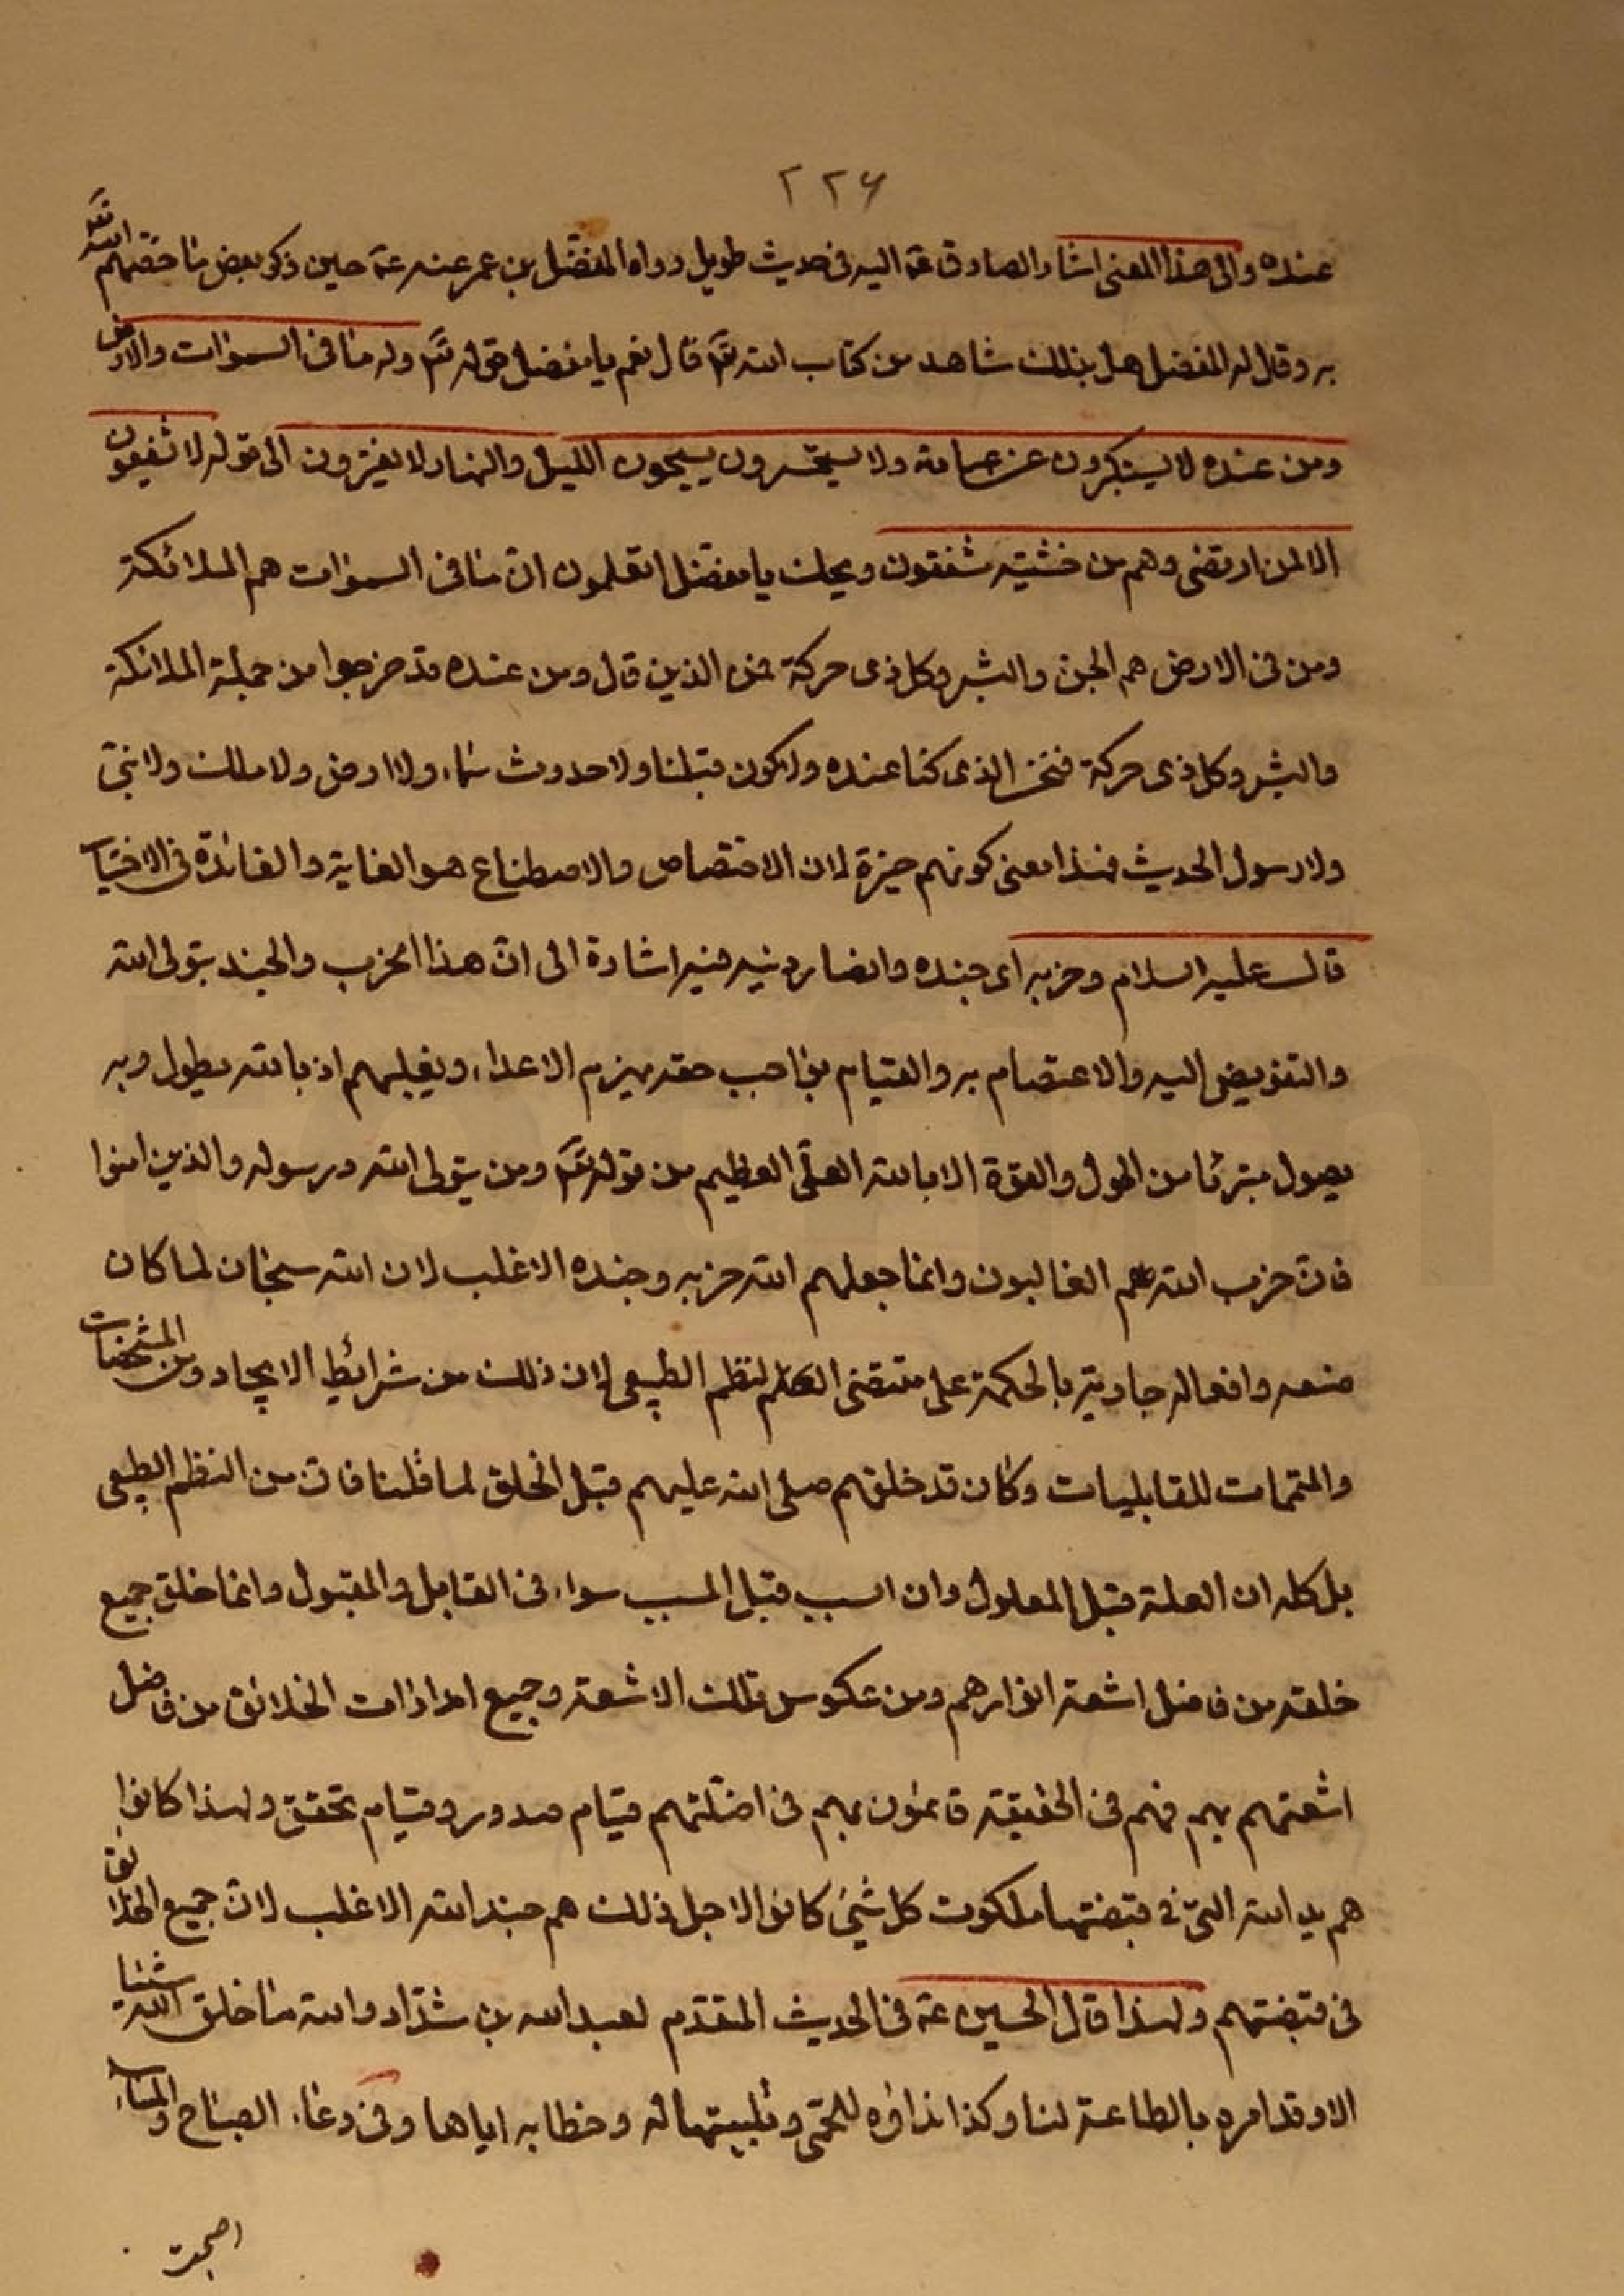 ٢٢٦
عنده والى هذا المعنى اشار الصادق عۤ اليه فى حديث طويل رواه المفضل بن عمر عنه عۤ حين ذكر بعض ما خصّهم الله تۤع
به وقال له المفضل هل بذلك شاهد من كتاب الله تۤع قال نعم يا مفضل قوله تۤع وله ما فى السموات والارض
ومن عنده لا يستكبرون عن عبادته ولا يستحسرون يسبحون الليل والنهار لا يفترون الى قوله لا يشفعون
الا لمن ارتضى وهم من خشيته مشفقون ويحك يا مفضل اتعلمون انّ ما فى السموات هم الملائكة
ومن فى الارض هم الجن والبشر وكل ذى حركة فمن الذين قال ومن عنده قد خرجوا من جملة الملائكة
والبشر وكل ذى حركة فنحن الذى كنا عنده ولا كون قبلنا ولا حدوث سماء ولا ارض ولا ملك ولا نبىّ
ولا رسول الحديث فهذا معنى كونهم خيرة لان الاختصاص والاصطناع هو الغاية والفائدة فى الاختيار
قال عليه السلام وحزبه اى جنده وانصار دينه فيه اشارة الى انّ هذا الحزب والجند بتولى الله
والتفويض اليه والاعتصام به والقيام بواجب حقه يهزم الاعداء ويغلبهم اذ بالله يطول وبه
يصول متبرئا من الحول والقوة الا بالله العلى العظيم من قوله تۤع ومن يتولى الله ورسوله والذين امنوا
فانّ حزب الله هم الغالبون وانما جعلهم الله حزبه وجنده الاغلب لان الله سبحان لما كان
صنعه وافعاله جارية بالحكمة على مقتضى النظم الطبيعى لان ذلك من شرائط الايجاد ومن المشخصات
والمتممات للقابليات وكان قد خلقهم صلى الله عليهم قبل الخلق لما قلنا فانّ من النظم الطبيعى
بل كله ان العلة قبل المعلول وان السبب قبل المسبب سواء فى القابل والمقبول وانما خلق جميع
خلقه من فاضل اشعة انوارهم ومن عكوس تلك الاشعة وجميع امدادات الخلائق من فاضل
اشعتهم بهم فهم فى الحقيقة قائمون بهم فى اظلتهم قيام صدور وقيام تحقق ولهذا كانوا
هم يد الله التى فى قبضتها ملكوت كل شئ كانوا لاجل ذلك هم جند الله الاغلب لانّ جميع الخلائق
فى قبضتهم ولهذا قال الحسين عۤ فى الحديث المتقدم لعبد الله بن شدّاد والله ما خلق الله شيئا
الا وقد امره بالطاعة لنا وكذا نداؤه للحمّى وتلبيتها له وخطابه اياها وفى دعاء الصباح والمساء
اصبحت